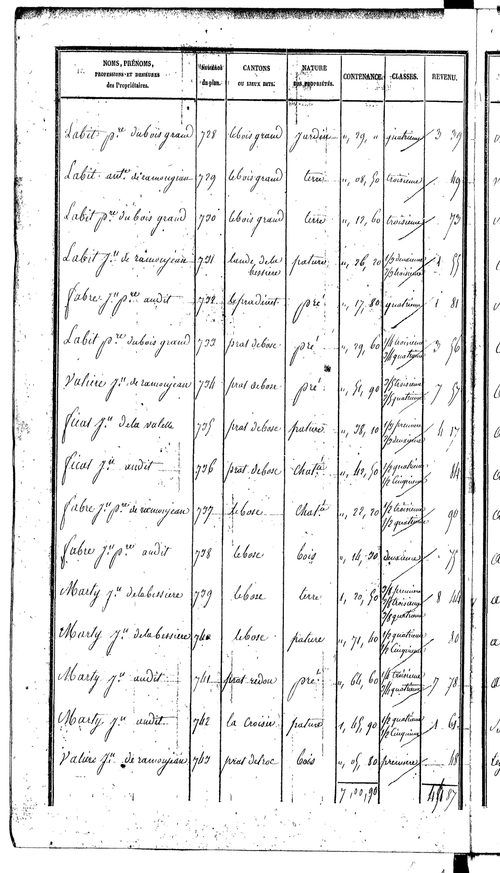 NOMS, PRÉNOMS, PROFESSIONS ET DEMEURES des Propriétaires. | du plan. | CANTONS OU LIEUX DITS. | NATURE DES PROPRIÉTÉS. | CONTENANCE. | CLASSES. | REVENU.
Labit p.re dubois grand 728 lebois grand jardin „ 29, „ quatrieme 3 39
Labit ant.ne de ramonjean 729 lebois grand terre „ 08, 50 troisieme 49
Labit p.re dubois grand 730 lebois grand terre „ 12, 60 troisieme 73
Labit j.n de ramonjean 731 lande dela bessière pature „ 26, 20 1/2 deuxieme 1/2 troisieme 1 55
fabre j.n p.re audit 732 le pradinet pré „ 17, 80 quatrieme 1 81
Labit p.re dubois grand 733 prat debosc pré „ 29, 60 1/4 troisieme 3/4 quatrieme 3 56
Valiere j.n de ramonjean 734 prat debosc pré „ 51, 90 quatrieme 7 57
ficat j.n dela valette 735 prat debosc pature „ 38, 10 1/2 premiere 1/2 deuxieme 4 17
ficat j.n audit 736 prat debosc chat.é „ 42, 50 1/2 quatrieme 1/2 cinquieme 84
fabre j.n p.re de ramonjean 737 lebosc chat.é „ 22, 20 1/2 troisieme 1/2 quatrieme 90
fabre j.n p.re audit 738 lebosc bois „ 14, 30 deuxieme 75
Marty j.n delabessière 739 lebosc terre 1, 20, 50 premiere troisieme quatrieme 8 44
Marty j.n delabessière 740 lebosc pature „ 71, 40 1/2 quatrieme 1/2 cinquieme 80
Marty j.n audit 741 prat redon pré „ 64, 60 1/4 troisieme 3/4 quatrieme 7 78
Marty j.n audit 742 la croisie pature 1, 45, 90 1/2 quatrieme 1/2 cinquieme 1 61
Valiere j.n de ramonjean 743 prat delroc bois „ 05, 80 premiere 48
7, 00, 90